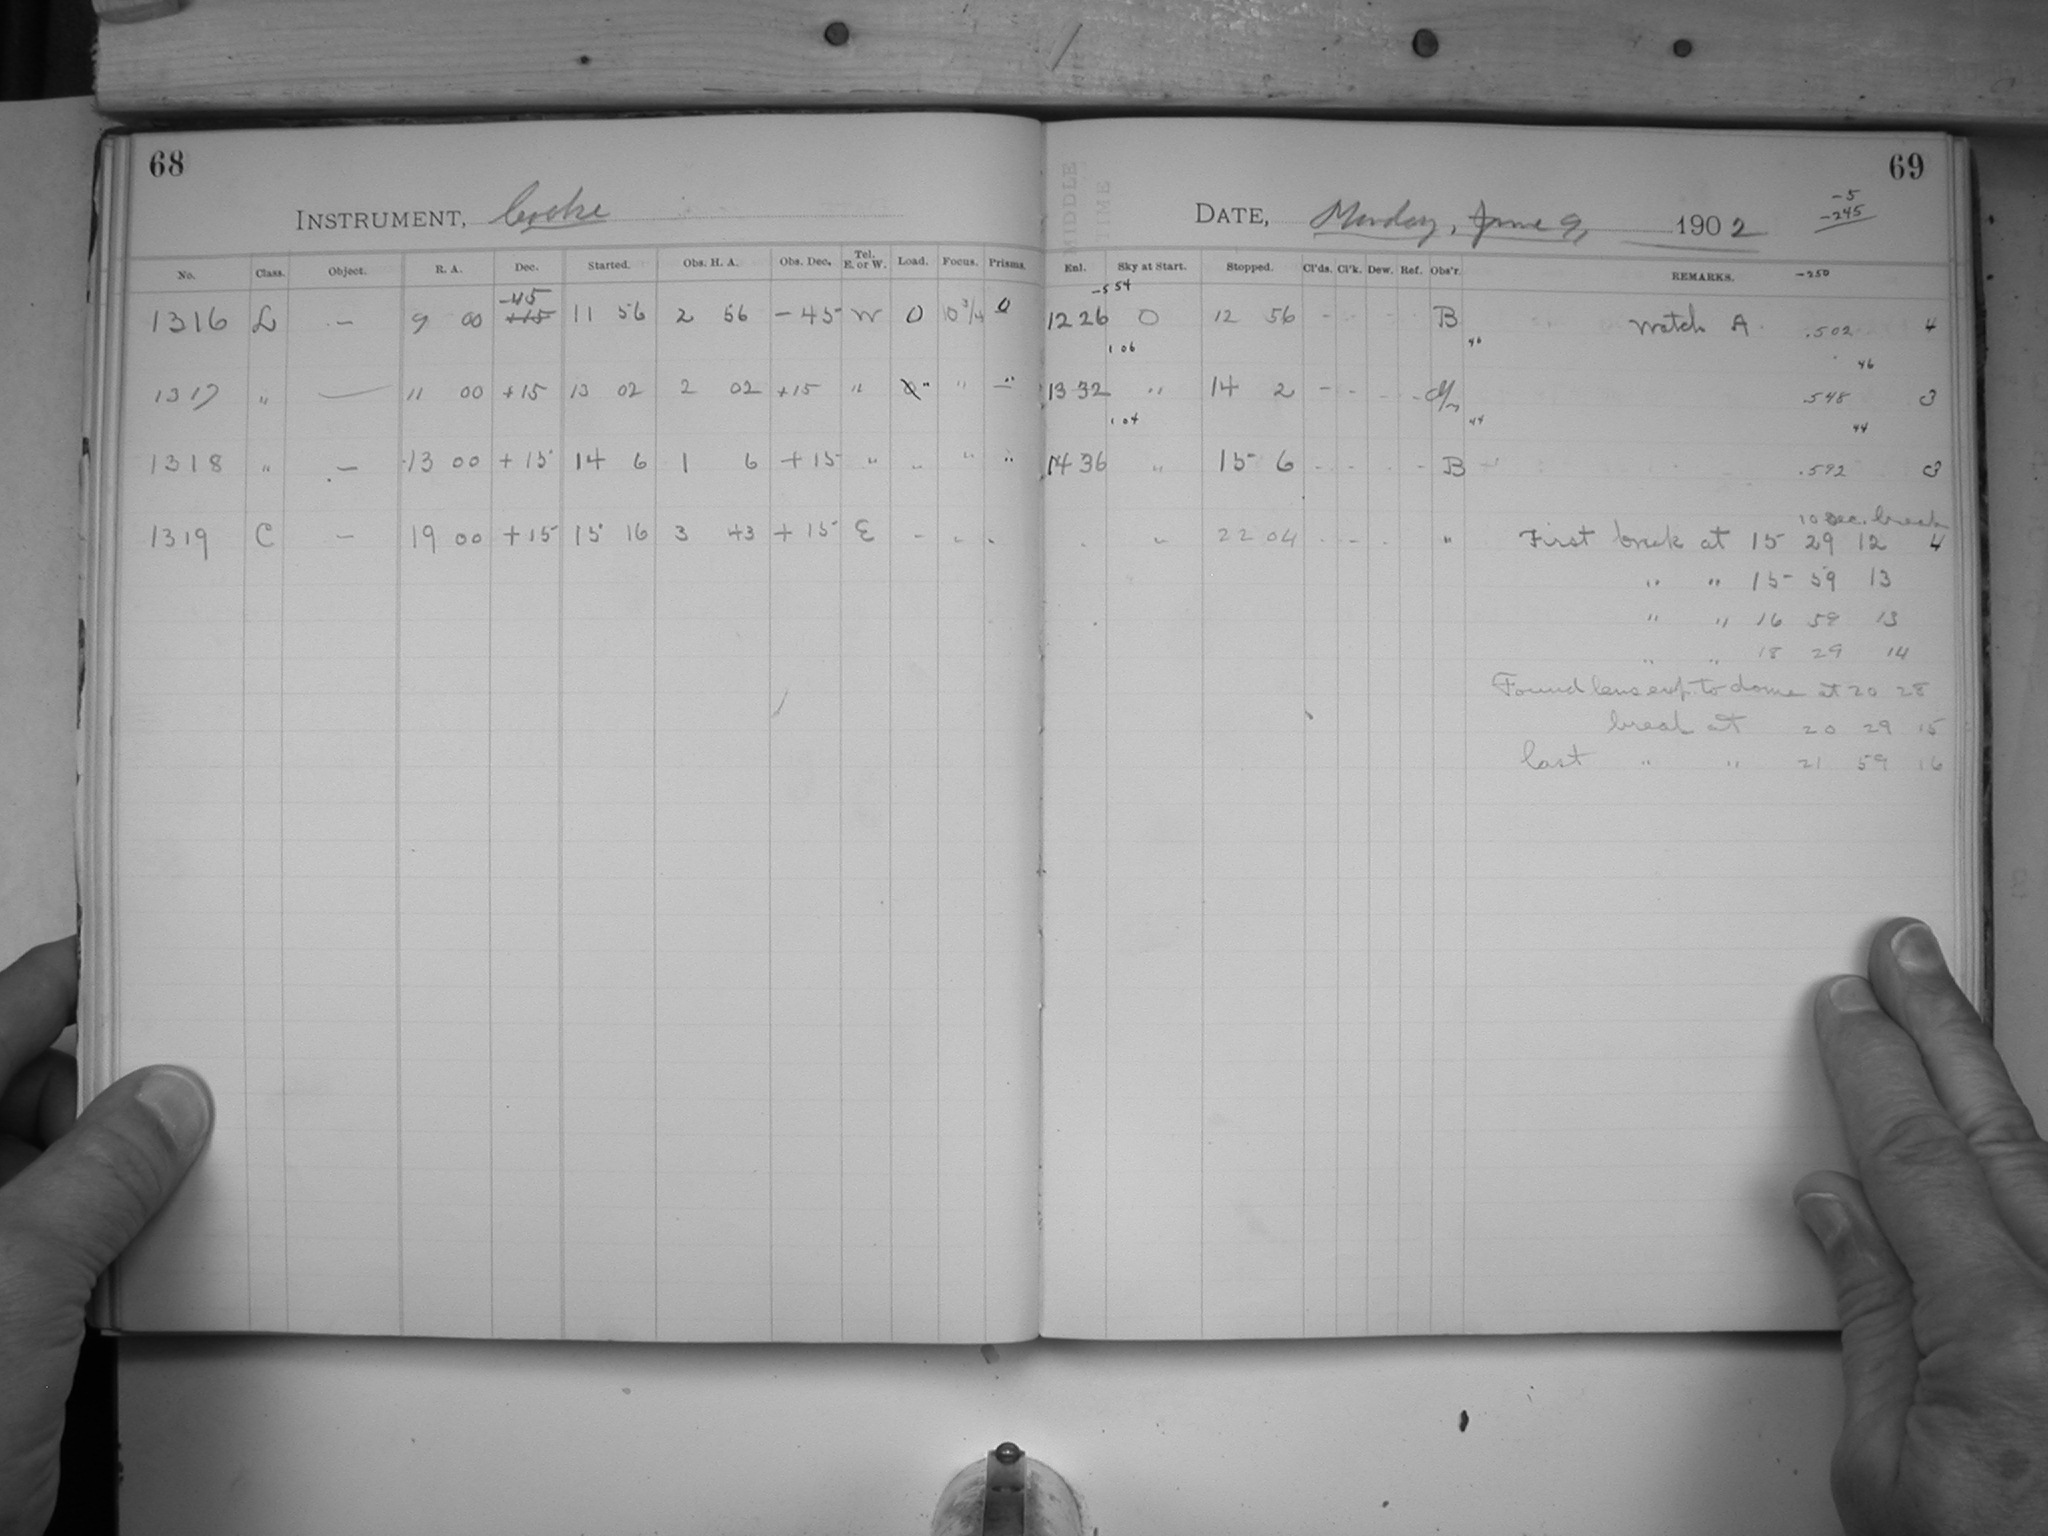 68
INSTRUMENT, Cooke
No. Class. Object. R. A. Dec. Started. Obs. H. A. Obs. Dec. Tel. E. or W. Load. Focus. Prisms.
-45
1316 L — 9 00 +15 11 56 2 56 -45 W 0 10 3/4 0
1317 " — 11 00 +15 13 02 2 02 +15 " " " "
1318 " — 13 00 +15 14 6 1 6 +15 " " " "
1319 C — 19 00 +15 15 16 3 43 +15 E - " "
69
MIDDLE
TIME
-5
-245
DATE, Monday, June 9, 1902
Enl. Sky at Start. Stopped. Cl'ds. Cl'k. Dew. Ref. Obs'r. REMARKS. -250
-5 54
12 26 0 12 56 - - - - B Watch A .502 4
1 06 46
46
13 32 " 14 2 - - - - .548 3
1 04 44
44
14 36 " 15 6 - - - - B .592 3
10 sec. break
" 22 04 - - - " First break at 15 29 12 4
" " 15 59 13
" " 16 59 13
" " 18 29 14
Found lens exp. to dome at 20 28
break at 20 29 15
last " " 21 59 16